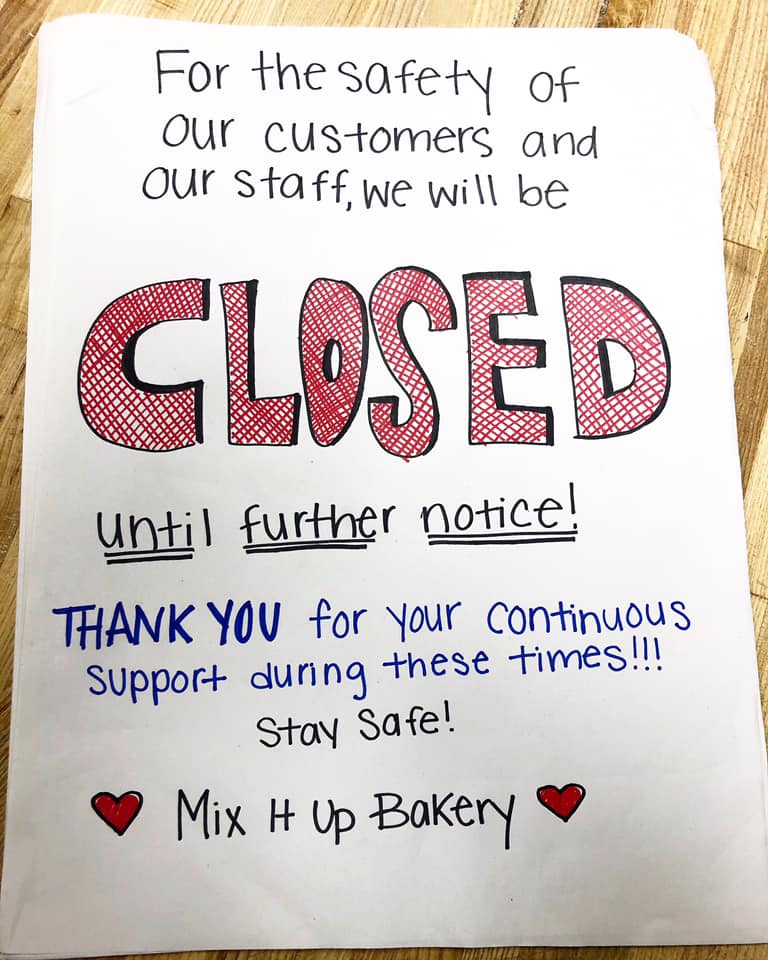 For the safety of
our customers and
our staff, we will be
CLOSED
until further notice!
THANK YOU for your continuous
support during these times!!!
Stay Safe!
Mix It Up Bakery